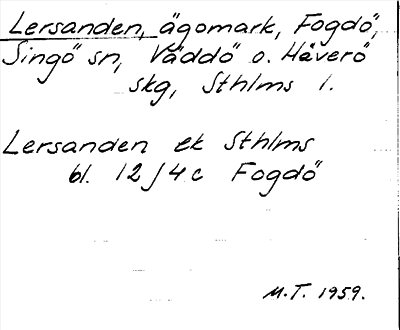 Lersanden, ägomark, Fogdö,
Singö sn, Väddö o. Häverö
skg, Sthlms l.
Lersanden ek Sthlms
bl. 12 J 4 c Fogdö
M.T. 1959.